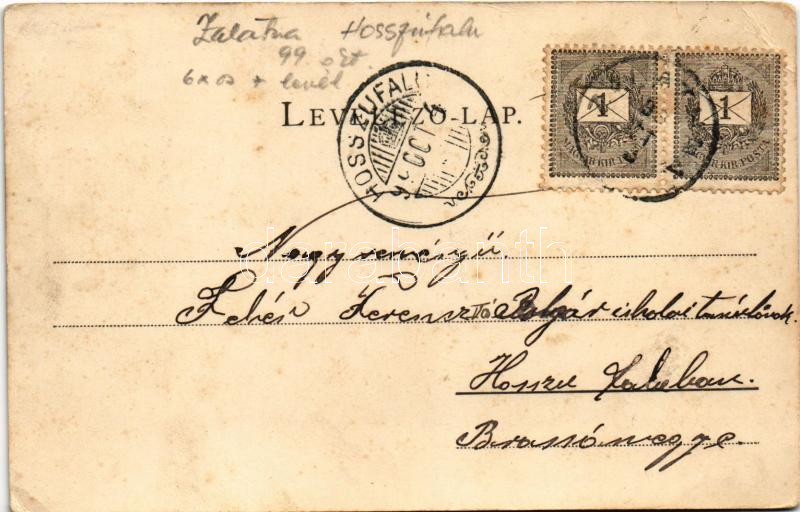 Zalatna Hosszúfalu
99 okt.
6x os + levél
LEVELEZŐ-LAP.
HOSSZUFALU
OCT
1
MAGYAR KIR. POSTA
1
MAGYAR KIR. POSTA
Nagyreményű
Fehér Ferensz polgár iskolai tanulónak.
Hosszu faluban.
Brassómegye.
darabanth